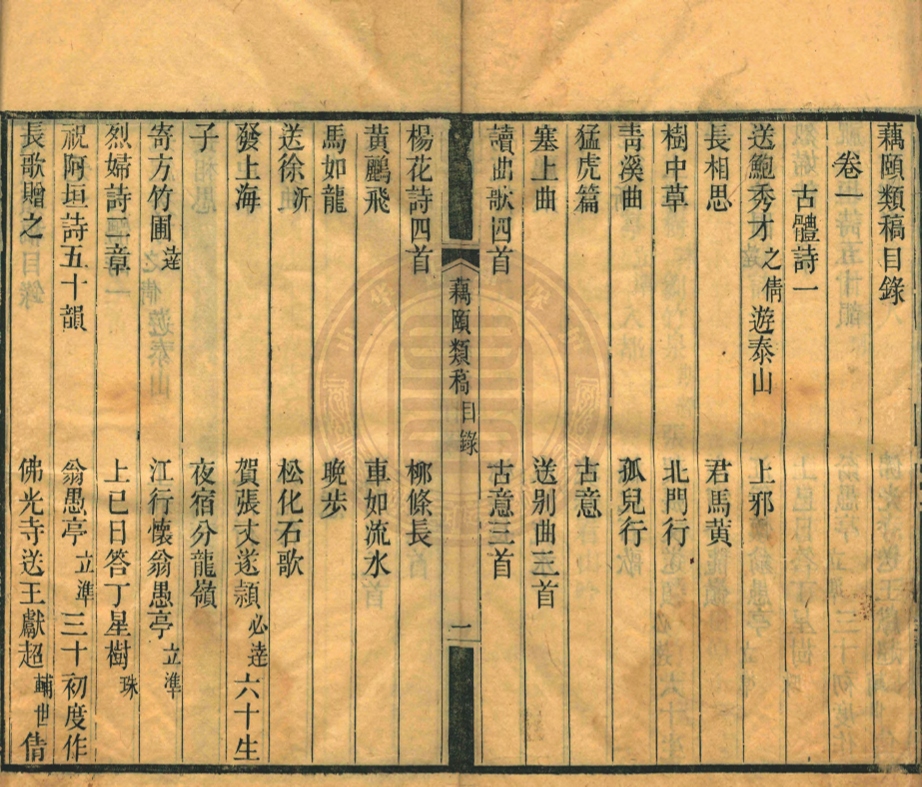 藕頤類稿目錄
卷一
古體詩一
送鮑秀才之倩遊泰山　上邪
長相思　君馬黃
樹中草　北門行
靑溪曲　孤兒行
猛虎篇　古意
塞上曲　送別曲三首
讀曲歌四首　古意三首
藕頤類稿　目錄　一
楊花詩四首　柳條長
黃鸝飛　車如流水
馬如龍　晚步
送徐沂　松化石歌
發上海　賀張丈遂頴必逹六十生
子　夜宿分龍嶺
寄方竹圃逹　江行懷翁愚亭立準
烈婦詩二章　上巳日答丁星樹珠
祝阿垣詩五十韻　翁愚亭立準三十初度作
長歌贈之　佛光寺送王獻超輔世倩